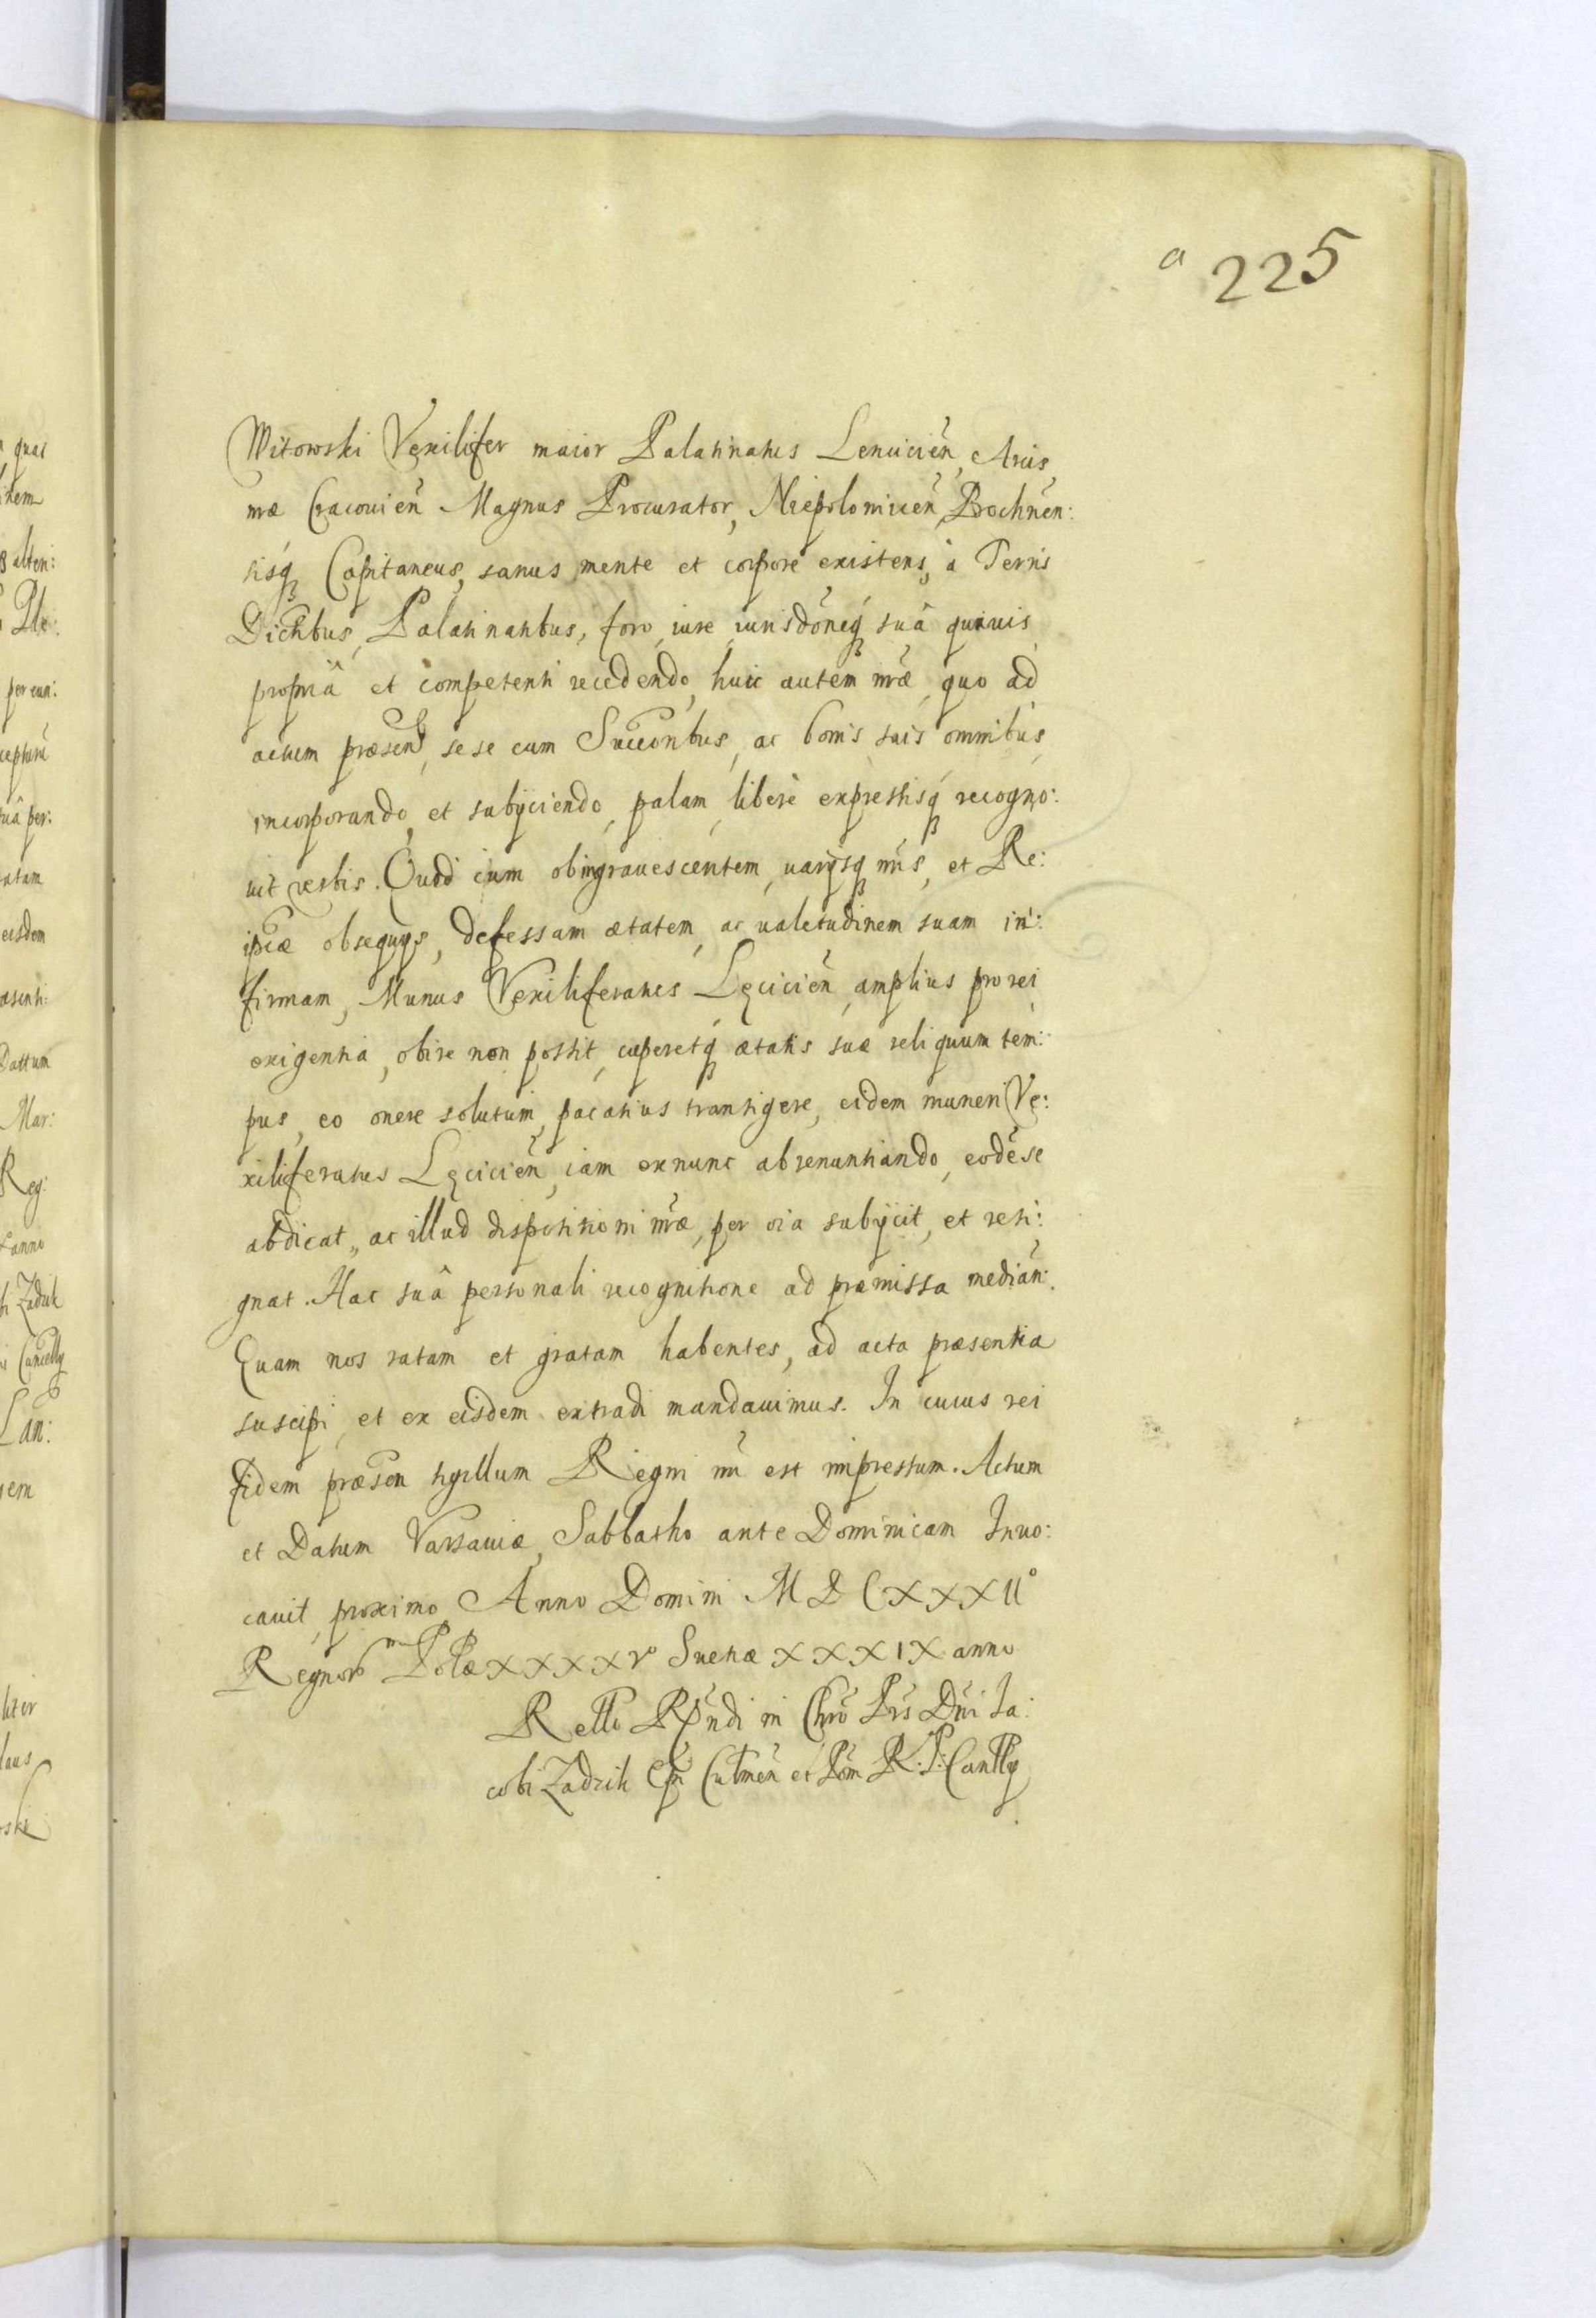 a 225
Witowski Vexilifer maior Palatinatus Lencicien̄, Arcis,
nr̄æ Cracouien̄ Magnus Procurator, Niepolomicen̄, Bochnen̄:
sisq́ꝫ Capitaneus, sanus mente et corpore existens, à Terris
Dictibus, Palatinatibus, foro, iure iurisdōneq́ꝫ suâ quauis
propriâ et competenti recedendo, huic autem nr̄æ, quo ad
actum præsen̄, sese cum Succōribus, ac bonis suis omnibus,
incorporando, et subijciendo, palam, liberè expressisq́ꝫ recogno:
uit verbis. Quod cum obingrauescentem, uarijsq́ꝫ nr̄is, et Re:
ipcæ obsequijs, defessam ætatem, ac ualetudinem suam in:
firmam, Munus Vexiliferatus Lęcicien̄, amplius pro rei
exigentia, obire non possit, cuperetq́ꝫ ætatis suæ reliquum tem:
pus, eo onere solutum, pacatius transigere, eidem muneri Ve:
xiliferatus Lęcicien̄, iam exnunc abrenuntiando, eodē se
abdicat, ac illud dispositioni nr̄æ, per oīa subijcit, et resi:
gnat. Hac suâ personali recognitione ad præmissa median̄:
Quam nos ratam et gratam habentes, ad acta præsentia
suscipi, et ex eisdem extradi mandauimus. In cuius rei
fidem præsen sigillum Regni nr̄i est impressum. Actum
et Datum Varsauiæ, Sabbatho ante Dominicam Inuo:
cauit, proximo Anno Domini M D C X X X II°
Regnorm Polæ X X X X V° Suetiæ X X X I X anno
Rello Rn̄di in Chrō Pris Dn̄i Ia:
cobi Zadzik Epī Culmen̄ et Pom̄ R. P. Cancllrij